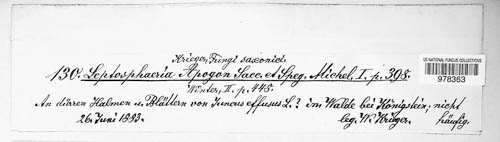 Krieger, Fungi saxonici.
US NATIONAL FUNGUS COLLECTIONS
978363
130. Leptosphaeria Apogon Sacc. et Speg. Michel, I. p. 398.
Winter, II. p. 445.
An dürren Halmen u. Blättern von Juncus effusus L.? im Walde bei Königstein; nicht häufig.
26. Juni 1883. leg. W. Krieger.